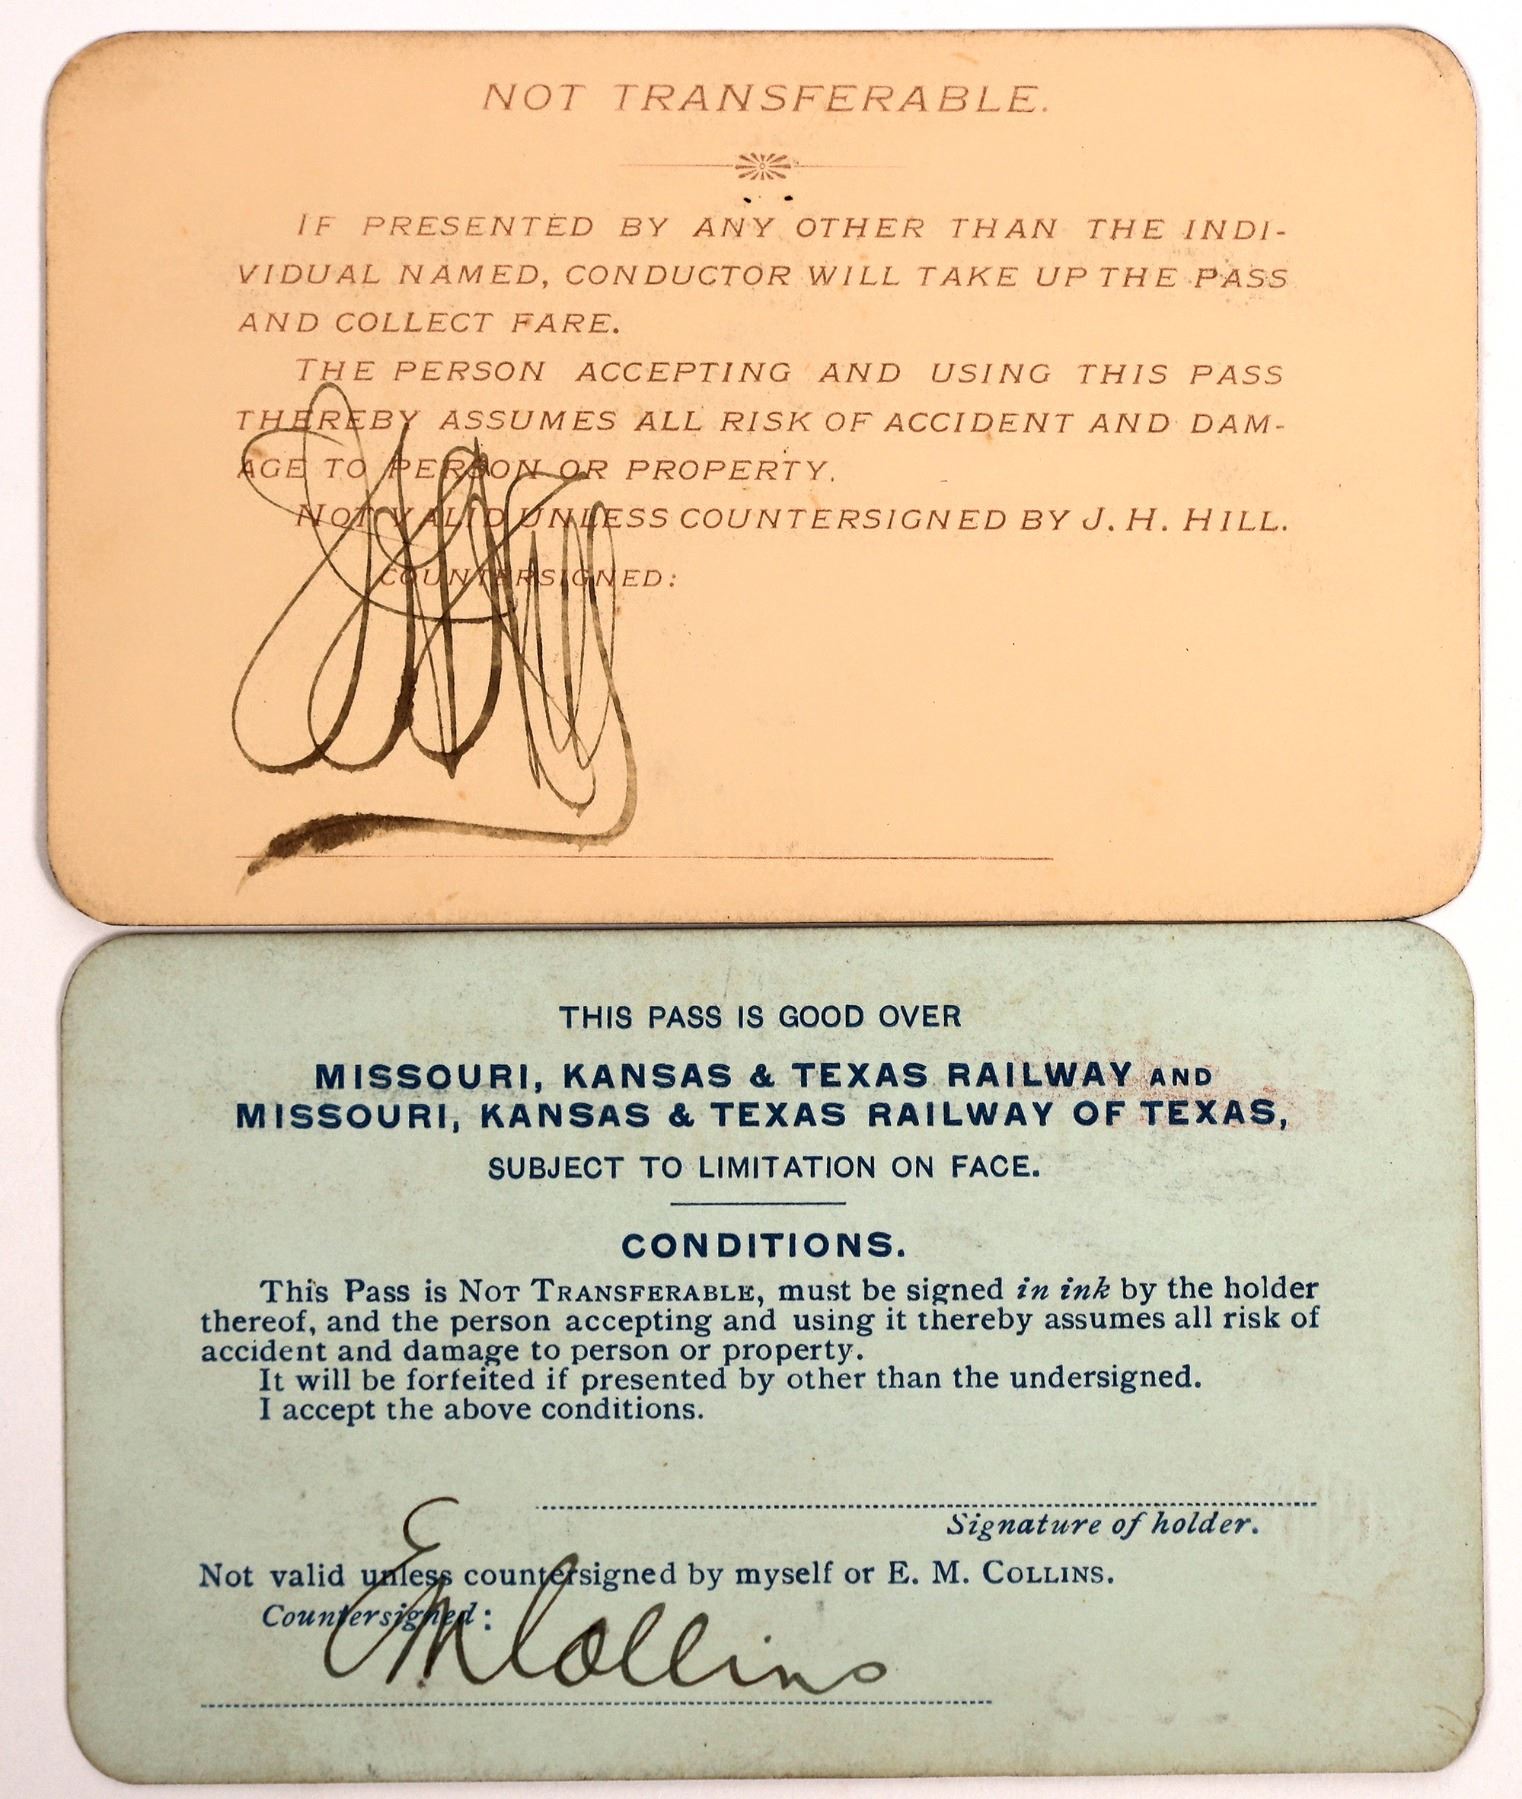 NOT TRANSFERABLE.
IF PRESENTED BY ANY OTHER THAN THE INDI-
VIDUAL NAMED, CONDUCTOR WILL TAKE UP THE PASS
AND COLLECT FARE.
THE PERSON ACCEPTING AND USING THIS PASS
THEREBY ASSUMES ALL RISK OF ACCIDENT AND DAM-
AGE TO PERSON OR PROPERTY.
NOT VALID UNLESS COUNTERSIGNED BY J. H. HILL.
COUNTERSIGNED:
THIS PASS IS GOOD OVER
MISSOURI, KANSAS & TEXAS RAILWAY AND
MISSOURI, KANSAS & TEXAS RAILWAY OF TEXAS,
SUBJECT TO LIMITATION ON FACE.
CONDITIONS.
This Pass is NOT TRANSFERABLE, must be signed in ink by the holder
thereof, and the person accepting and using it thereby assumes all risk of
accident and damage to person or property.
It will be forfeited if presented by other than the undersigned.
I accept the above conditions.
Signature of holder.
Not valid unless countersigned by myself or E. M. COLLINS.
Countersigned:
EM Collins